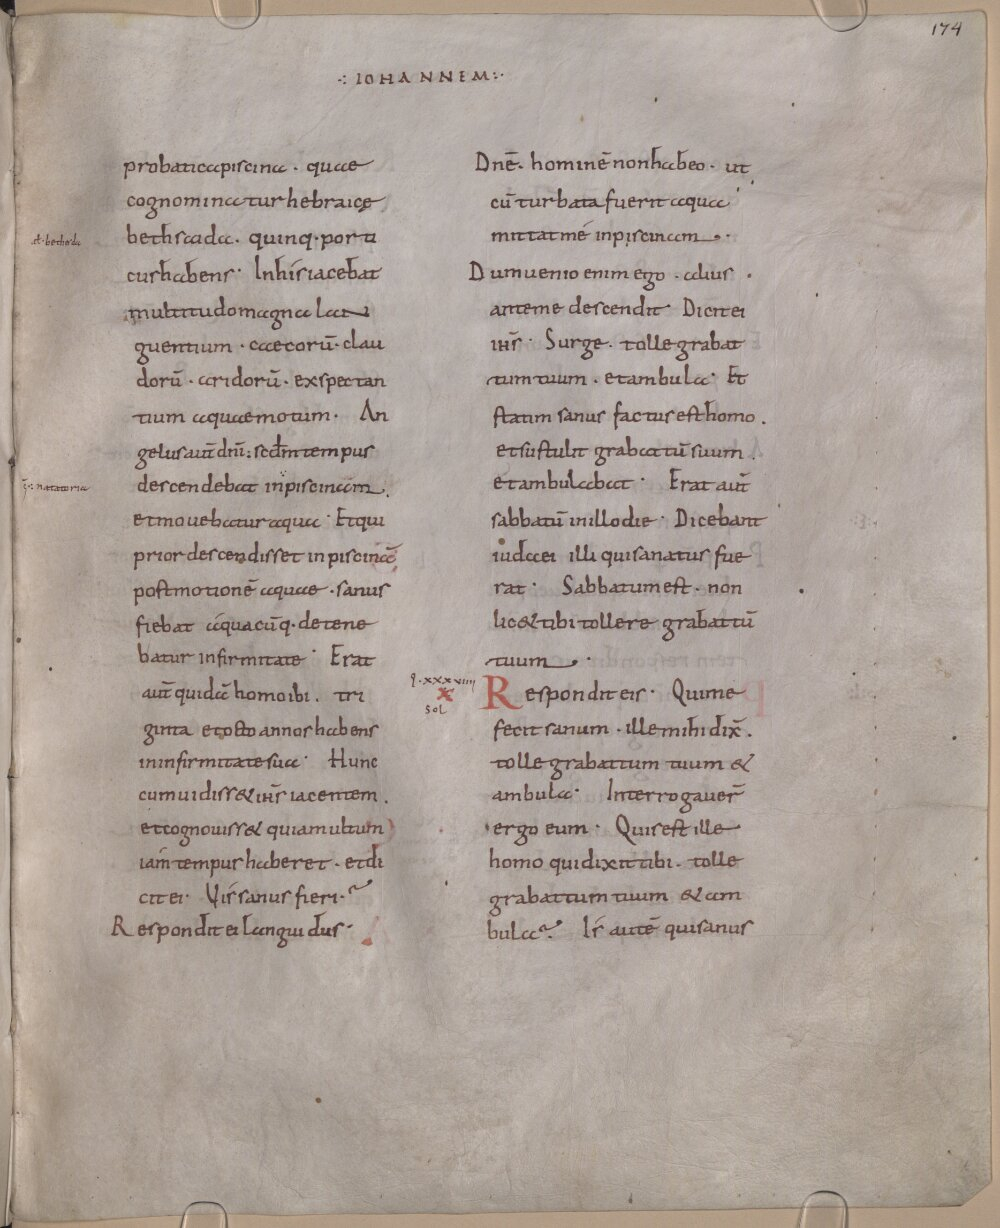 174
·: IOHANNEM :·
probatica piscina · quae
cognominatur hebraicę
bethsaida · quinq · porti
cus habens · In his iacebat
multitudo magna lan
guentium · caecorū · clau
dorū · aridorū · exspectan
tium aquae motum · An
gelus aūt dnī : scdm tempus
descendebat in piscinam .
et movebatur aqua · Et qui
prior descendisset in piscinā
post motionē aquae · sanus
fiebat a quacūq · detene
batur infirmitate · Erat
aūt quidā homo ibi . tri
ginta et octo annos habens
in infirmitate sua · Hunc
cum vidiss& ihs̄ iacentem .
et cognoviss& quia multum
iam tempus haberet · et di
cit ei · Vis sanus fieri ·
Respondit ei languidus ·
Dnē · hominē non habeo · ut
cū turbata fuerit aqua
mittat mé in piscinam ·
Dum uenio enim ego · alius ·
ante me descendit · Dicit ei
ihs̄ · Surge · tolle grabat
tum tuum · et ambula · Et
statim sanus factus est homo .
et sustulit grabatū suum .
et ambulabat · Erat aūt
sabbatū in illo die · Dicebant
iudaei illi qui sanatus fue
rat · Sabbatum est · non
lic& tibi tollere grabattū
tuum ·
xxxviiii
x
sol
Respondit eis · Qui me
fecit sanum · ille mihi dix̄ .
tolle grabattum tuum &
ambula · Interrogauer̄
ergo eum · Quis est ille
homo qui dixit tibi · tolle
grabattum tuum & am
bula · Is autē qui sanus